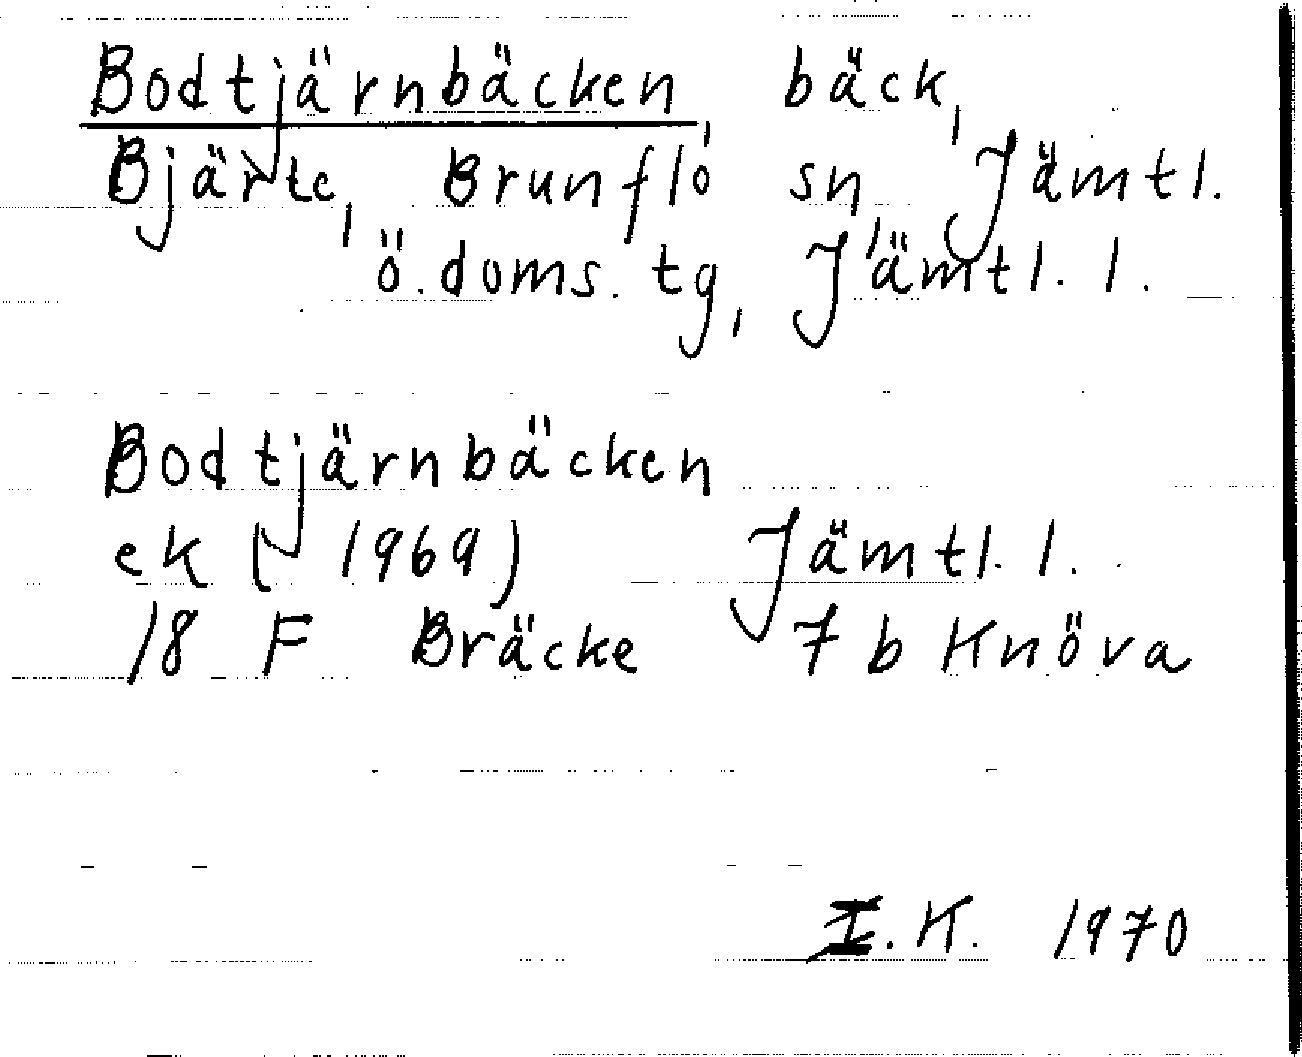 Bodtjärnbäcken, bäck,
Bjärte, Brunflo sn, Jämtl.
ö. doms. tg, Jämtl. l.
Bodtjärnbäcken
ek (1969) Jämtl. l.
18 F Bräcke 7 b Knöva
I. K. 1970